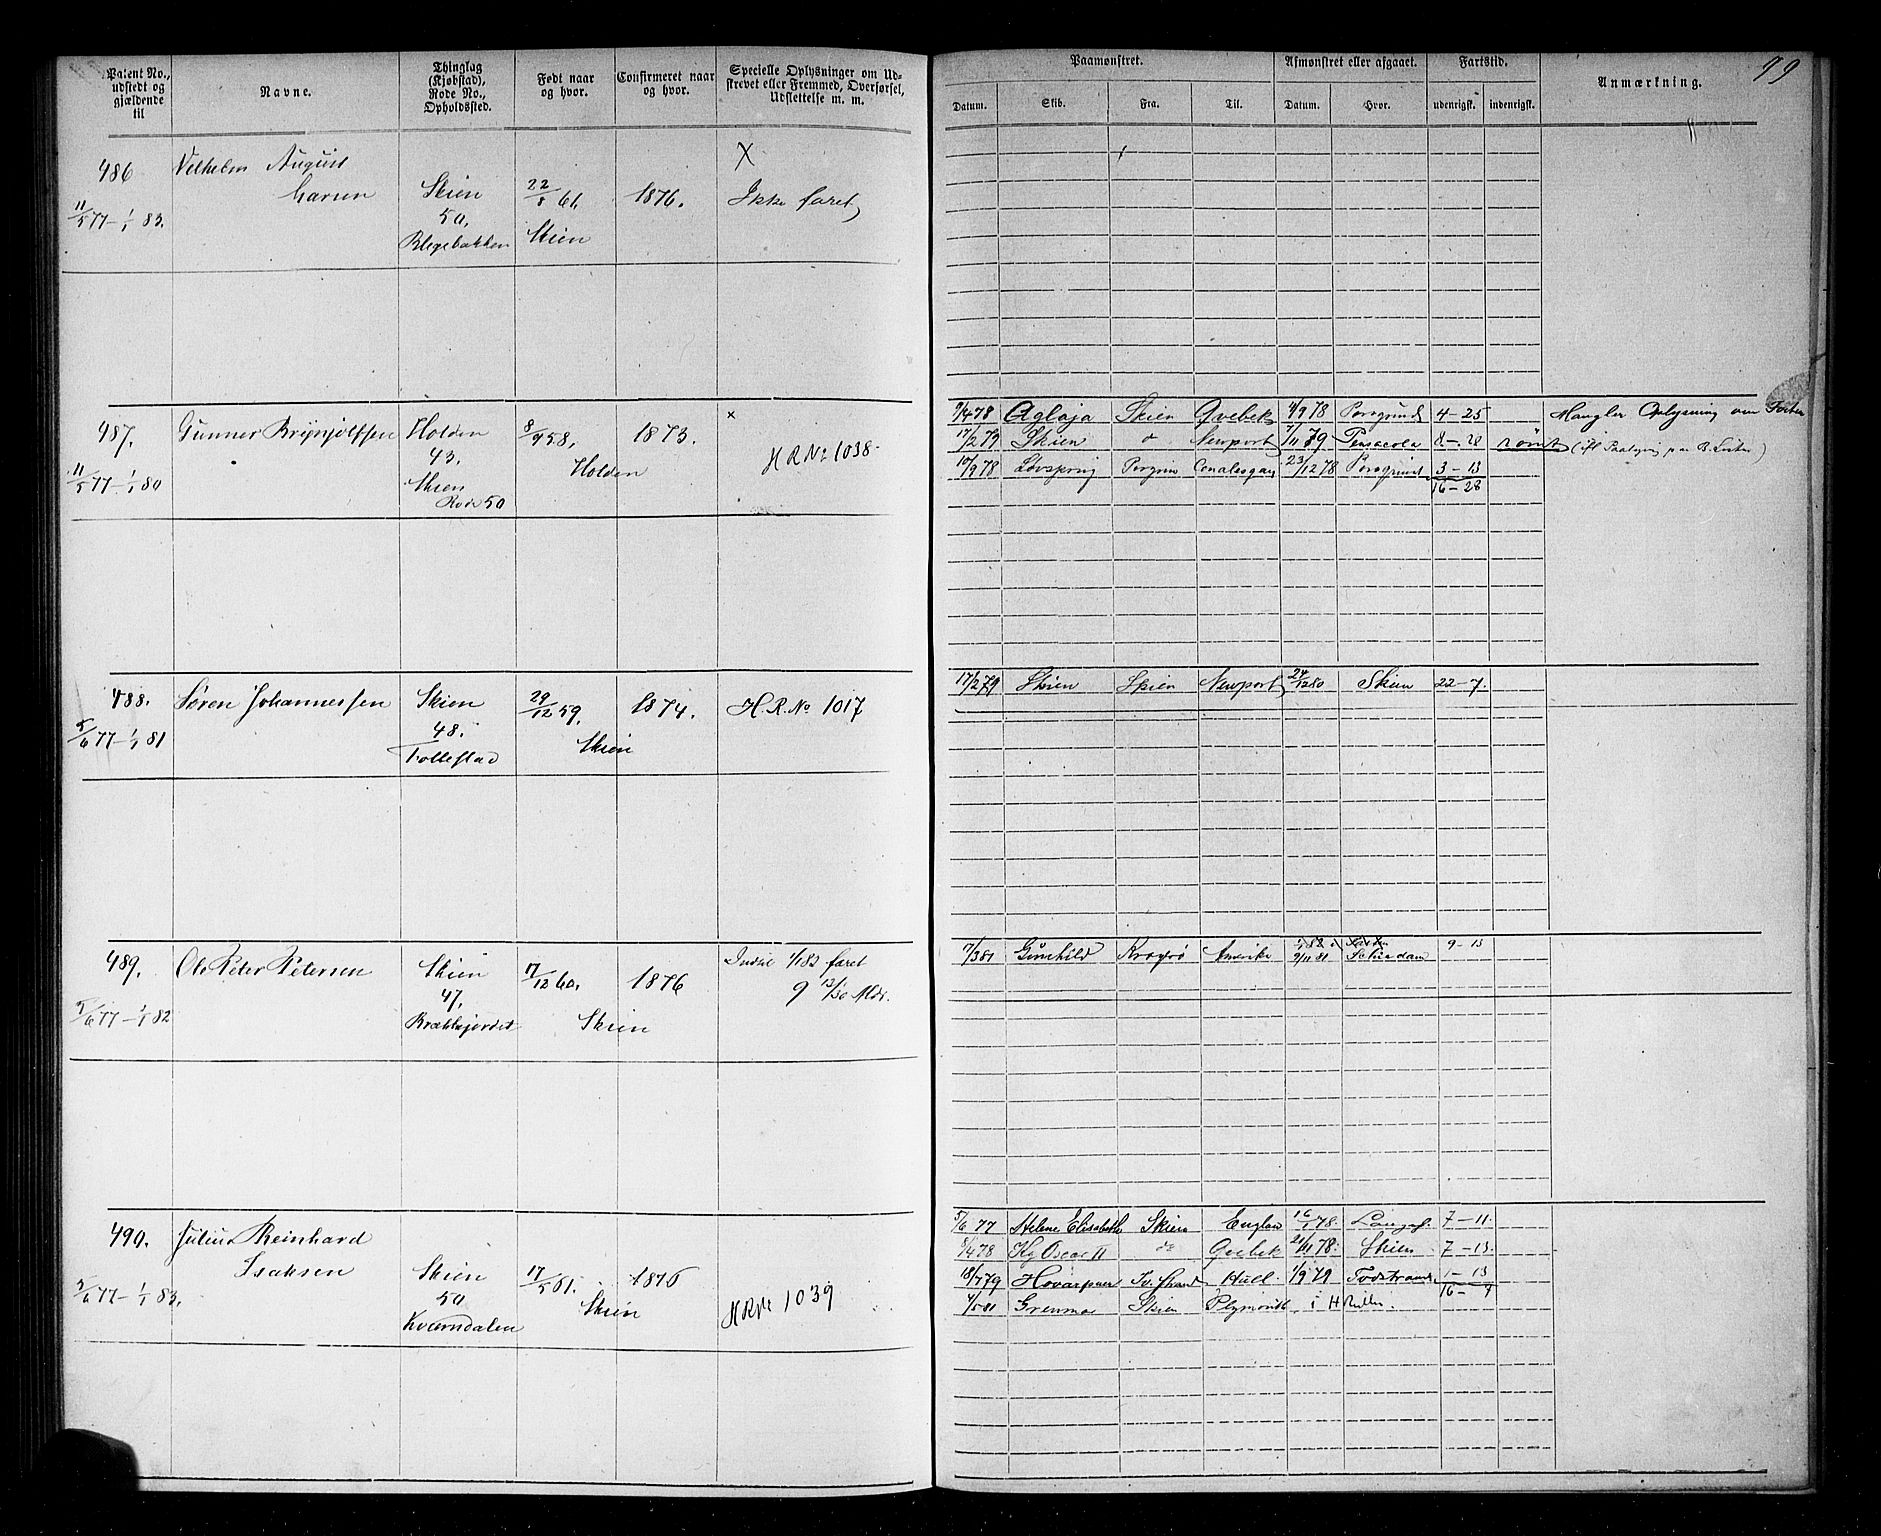 Patent No., udstedt og gjældende til
Navne.
Thinglag (Kjøbstad), Rode No., Opholdssted.
Født naar og hvor.
Confirmeret naar og hvor.
Specielle Oplysninger om Udskrevet eller Fremmed, Overførsel, Udslettelse m. m.
Paamønstret.
Afmønstret eller afgaaet.
Fartstid.
Anmærkning.
99
Datum.
Skib.
Fra.
Til.
Datum.
Hvor.
udenrigsk.
indenrigsk.
486
Vilhelm August
Larsen
11/5 77 – 1/1 83.
Skien
50.
Blegebakken
22/8 61.
Skien
1876.
X
Ikke faret
487.
Gunner Brynjolfssen
11/5 77 – 1/1 80
Holden
43.
Skien
Rode 50
8/4 58.
Holden
1873.
x
H R No 1038
9/4 78 Aglaja Skien Qvebek 4/9 78 Porsgrund 4 – 25 Mangler Oplysning om
17/2 79 Skien do Newport 7/11 79 Pensacola 8 – 20 rømt
10/9 78 Løvspring 23/12 78 Porsgrund 3 – 13
16 – 28
488.
Søren Johannessen
5/6 77 – 1/1 81
Skien
48.
Follestad
29/12 59.
Skien
1874.
H. R. No 1017
17/2 79 Skien Skien Newport 24/12 80 Skien 22 – 7.
489.
Ole Peter Petersen
5/6 77 – 1/1 82
Skien
47.
Brækkejordet
17/12 60.
Skien
1876
Indtil 1/1 82 faret
9 13/30 Mdr.
7/3 81 Gunhild Kragerø Amerika 9/11 81 Schiedam 9 – 13
490.
Julius Reinhard
Isaksen
5/6 77 – 1/1 83.
Skien
50
Kværndalen
17/5 61.
Skien
1876
H R No 1039
5/6 77 Helene Elisabeth Skien England 16/1 78. 7 – 11
8/4 78 Kg Oscar II do Qvebek 21/11 78. Skien 7 – 13.
18/7 79 Hull 1/9 79 1 – 13
16 – 7
4/5 81 Grenmar Skien Plymouth i H Rullen.